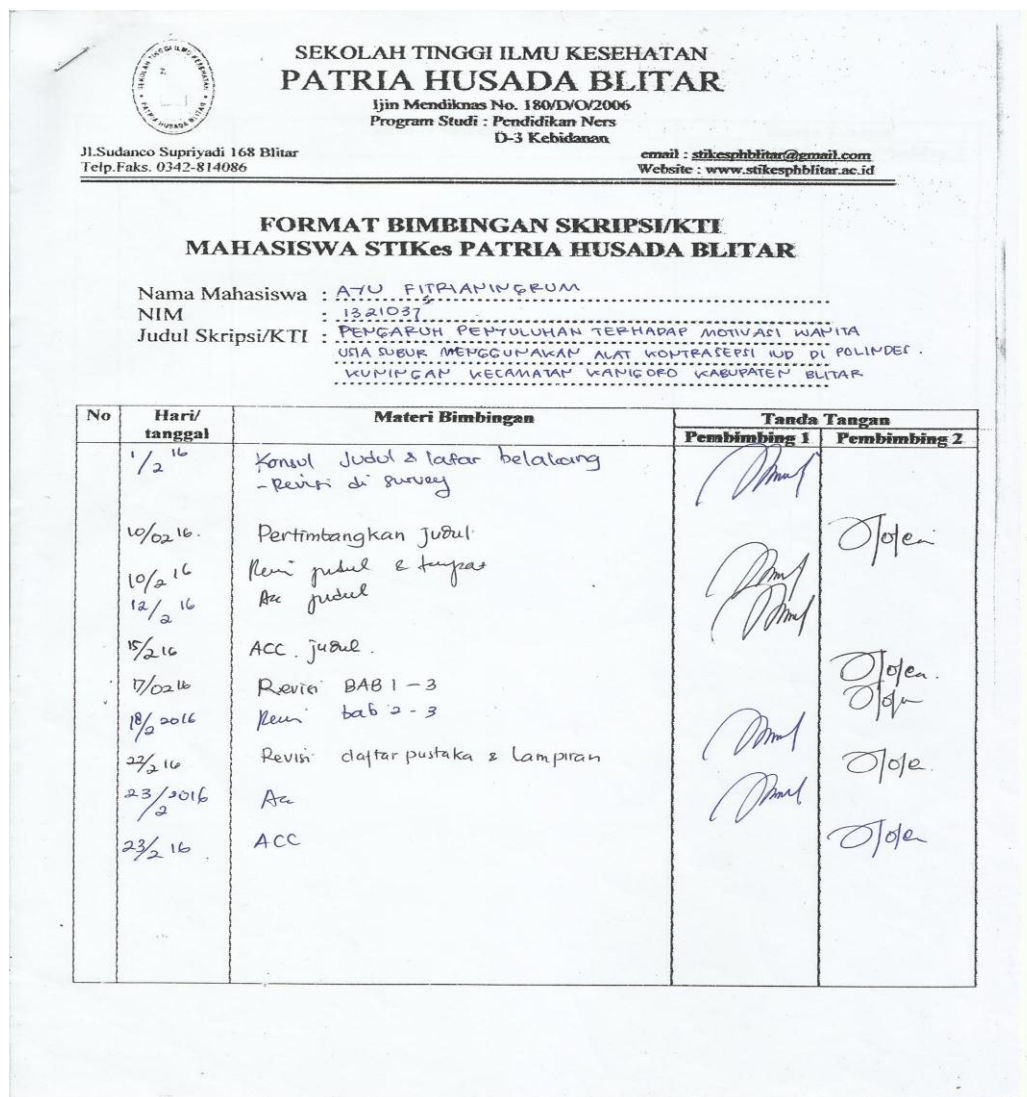 SEKOLAH TINGGI ILMU KESEHATAN
PATRIA HUSADA BLITAR
Ijin Mendiknas No. 180/D/O/2006
Program Studi : Pendidikan Ners
D-3 Kebidanan
Jl.Sudanco Supriyadi 168 Blitar
Telp.Faks. 0342-814086
email : stikesphblitar@gmail.com
Website : www.stikesphblitar.ac.id
FORMAT BIMBINGAN SKRIPSI/KTI
MAHASISWA STIKes PATRIA HUSADA BLITAR
Nama Mahasiswa : AYU FITRIANINGRUM
NIM : 1321037
Judul Skripsi/KTI : PENGARUH PENYULUHAN TERHADAP MOTIVASI WANITA
USIA SUBUR MENGGUNAKAN ALAT KONTRASEPSI IUD DI POLINDES.
KUNINGAN KECAMATAN KANIGORO KABUPATEN BLITAR
No Hari/ tanggal Materi Bimbingan Tanda Tangan
Pembimbing 1 Pembimbing 2
1/2 16 Konsul Judul & latar belakang
- Revisi di survey
10/02 16. Pertimbangkan judul.
10/2 16 Revisi judul & tempat
12/2 16 Acc judul
15/2 16 ACC. judul.
17/02 16 Revisi BAB 1 - 3
18/2 2016 Revisi bab 2 - 3
22/2 16 Revisi daftar pustaka & Lampiran
23/2 2016 Acc
23/2 16. ACC